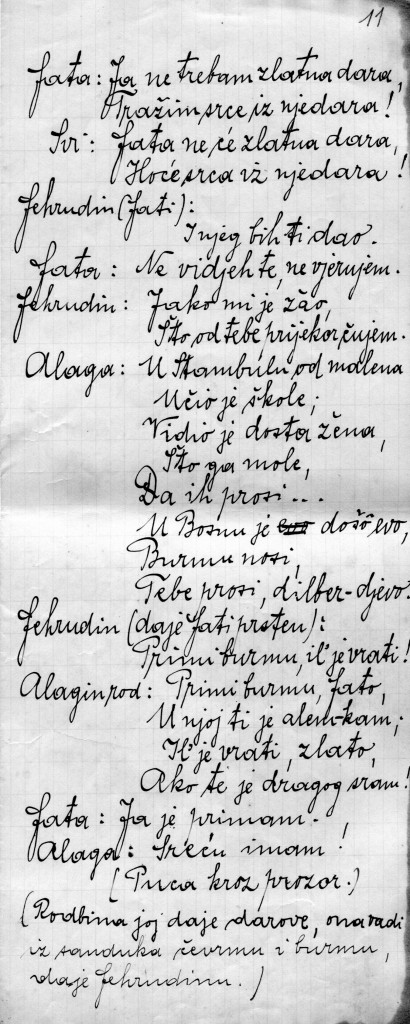 11
Fata: Ja ne trebam zlatna dara,
Tražim srce iz njedara!
Svi: Fata ne će zlatna dara,
Hoće srca iz njedara!
Fehrudin (Fati):
I njeg bih ti dao.
Fata: Ne vidjeh te, ne vjerujem.
Fehrudin: Jako mi je žao,
Što od tebe prijekor čujem.
Alaga: U Stambulu od malena
Učio je škole;
Vidio je dosta žena,
Što ga mole,
Da ih prosi...
U Bosnu je evo došô evo,
Burmu nosi,
Tebe prosi, dilber-djevo.
Fehrudin (daje Fati prsten):
Primi burmu, il' je vrati!
Alagin rod: Primi burmu, Fato,
U njoj ti je alem-kam;
Il' je vrati, zlato,
Ako te je dragog sram!
Fata: Ja je primam.
Alaga: Sreću imam!
(Puca kroz prozor.)
(Rodbina joj daje darove, ona vadi
iz sanduka čevrmu i burmu,
daje Fehrudinu.)